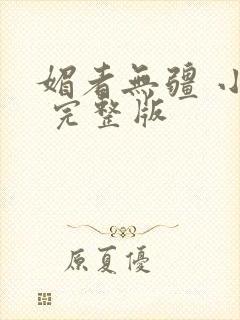 媚者無疆 小
完整版
原夏優